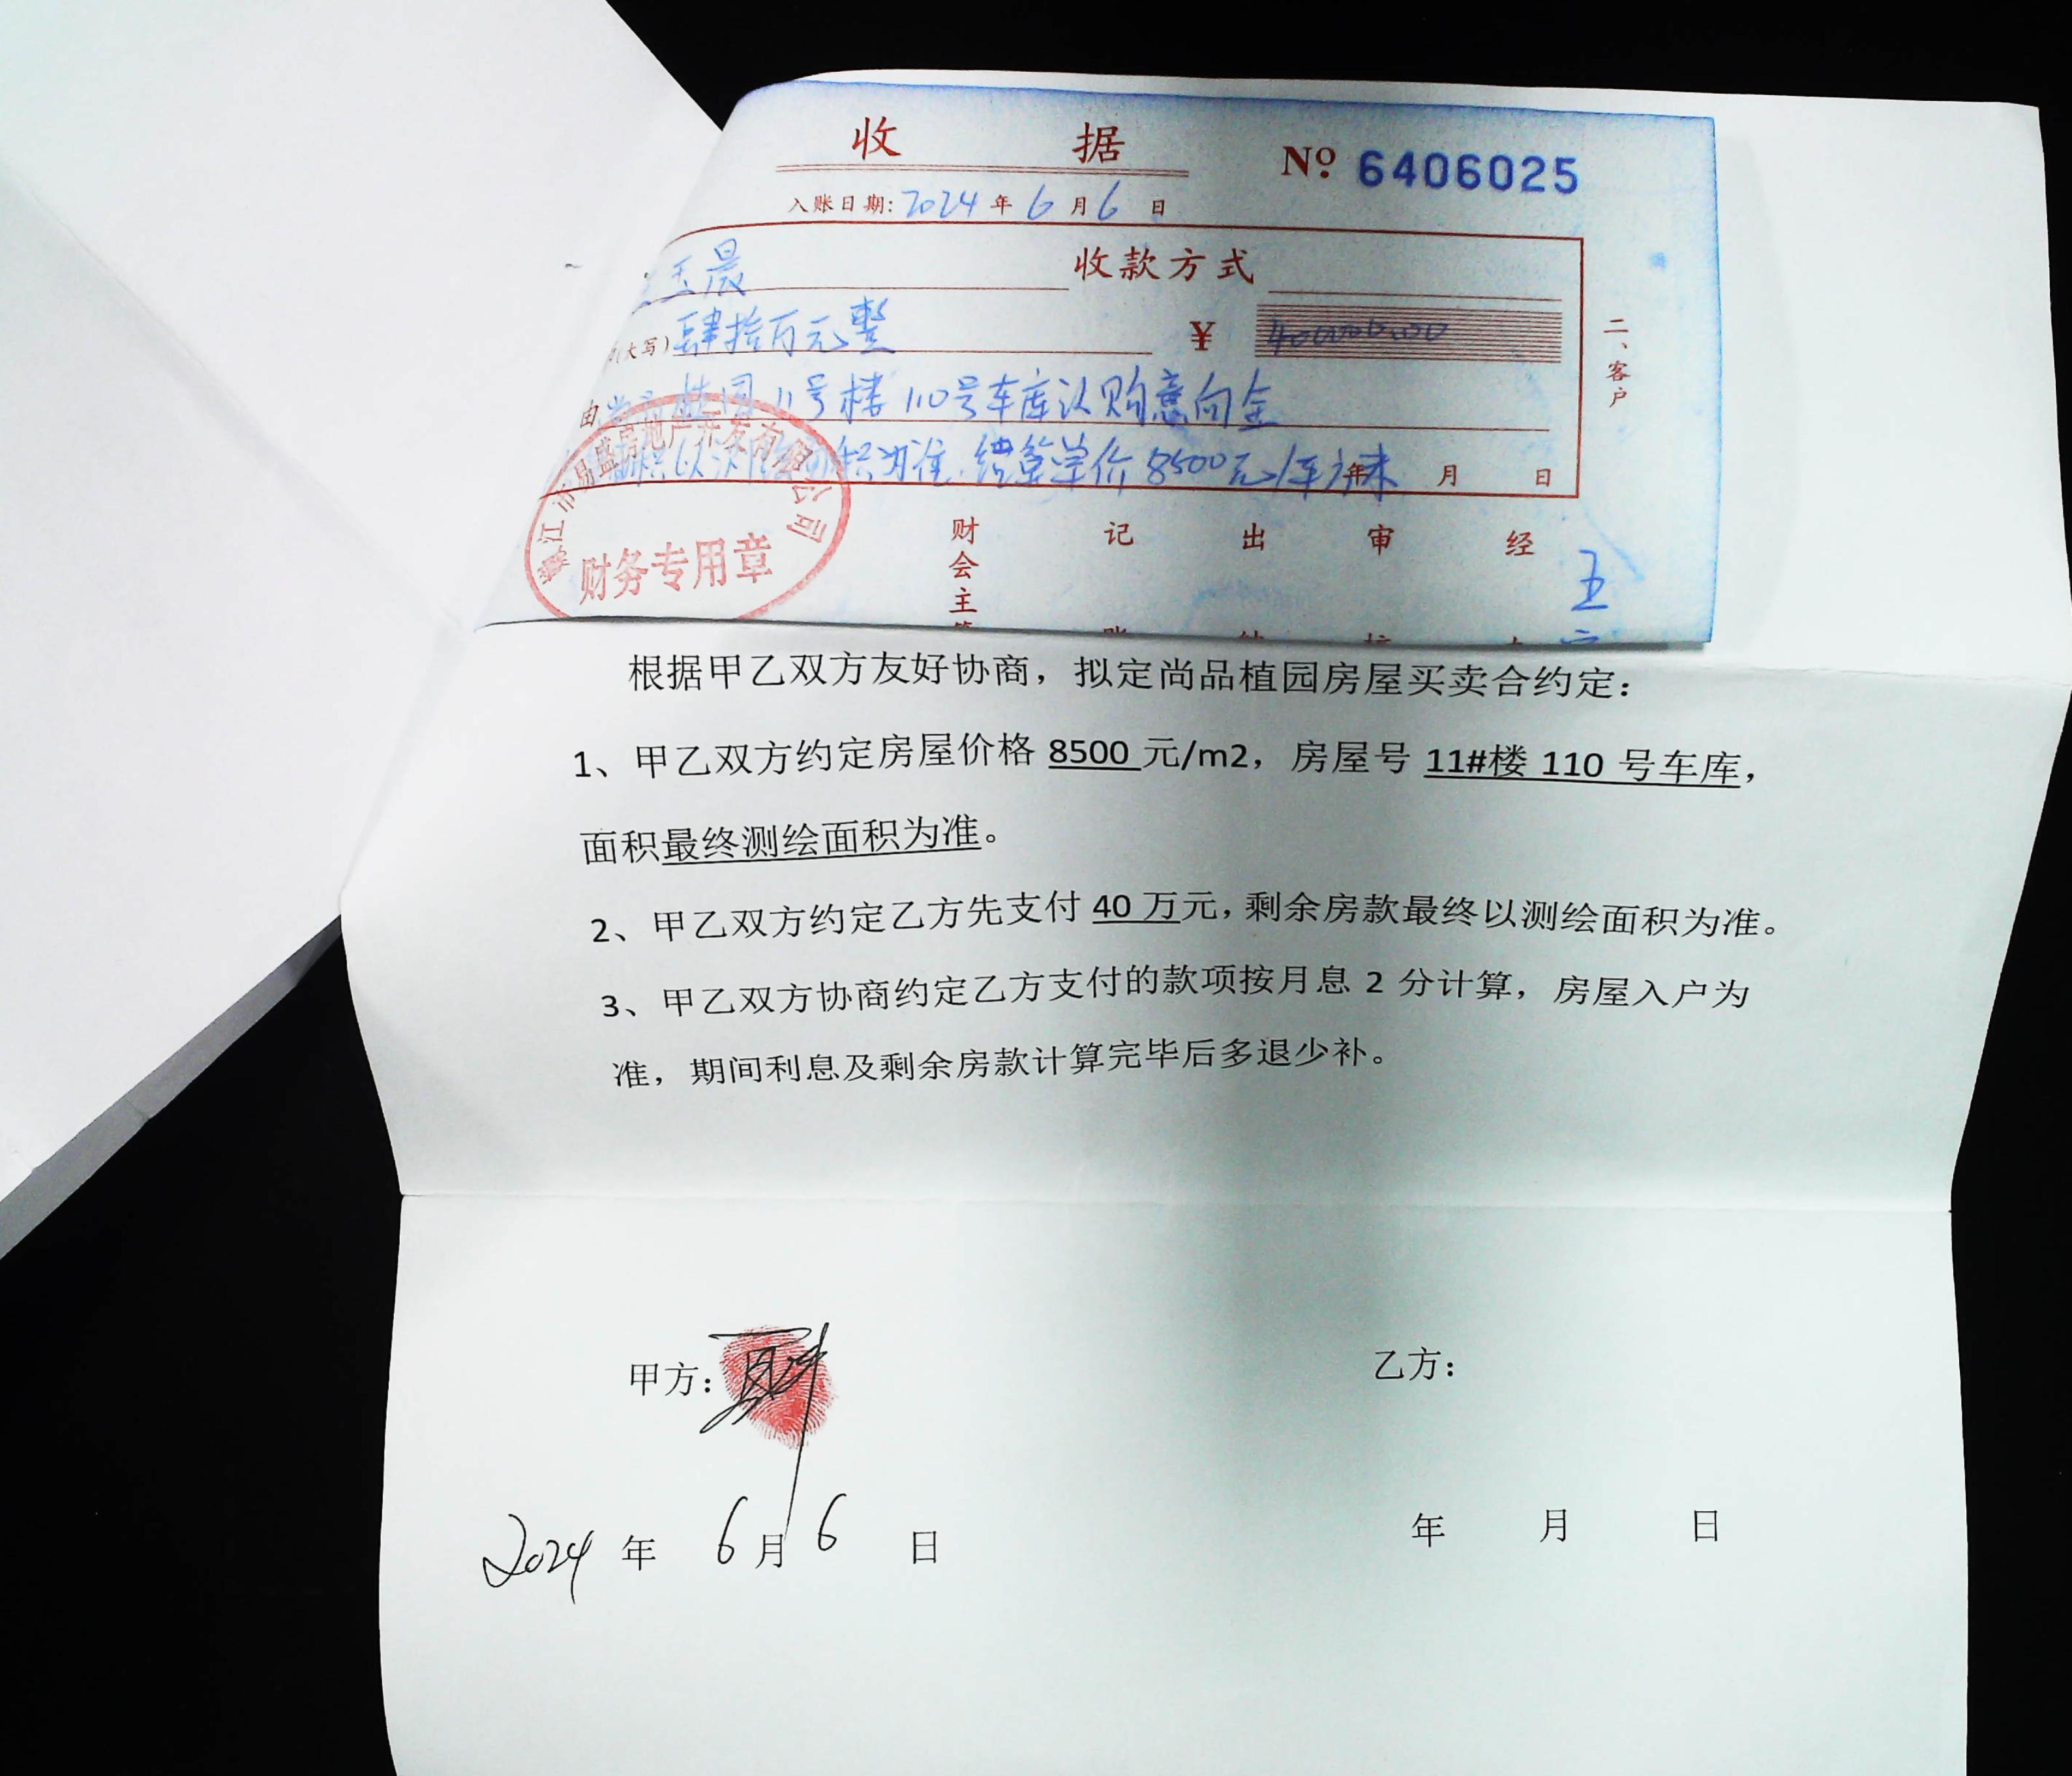 收 据
№ 6406025
入账日期: 2024 年 6 月 6 日
玉晨 收款方式
(大写) 肆拾万元整 ¥ 400000.00
由 11号楼 110号车库认购意向金
为准.结算单价8500元/ 年 月 日
二、客户
财务专用章
财会主 记 出 审 经
王
根据甲乙双方友好协商，拟定尚品植园房屋买卖合约定：
1、甲乙双方约定房屋价格 8500 元/m2，房屋号 11#楼 110 号车库，
面积最终测绘面积为准。
2、甲乙双方约定乙方先支付 40 万元，剩余房款最终以测绘面积为准。
3、甲乙双方协商约定乙方支付的款项按月息 2 分计算，房屋入户为
准，期间利息及剩余房款计算完毕后多退少补。
甲方： 乙方：
2024 年 6 月 6 日 年 月 日